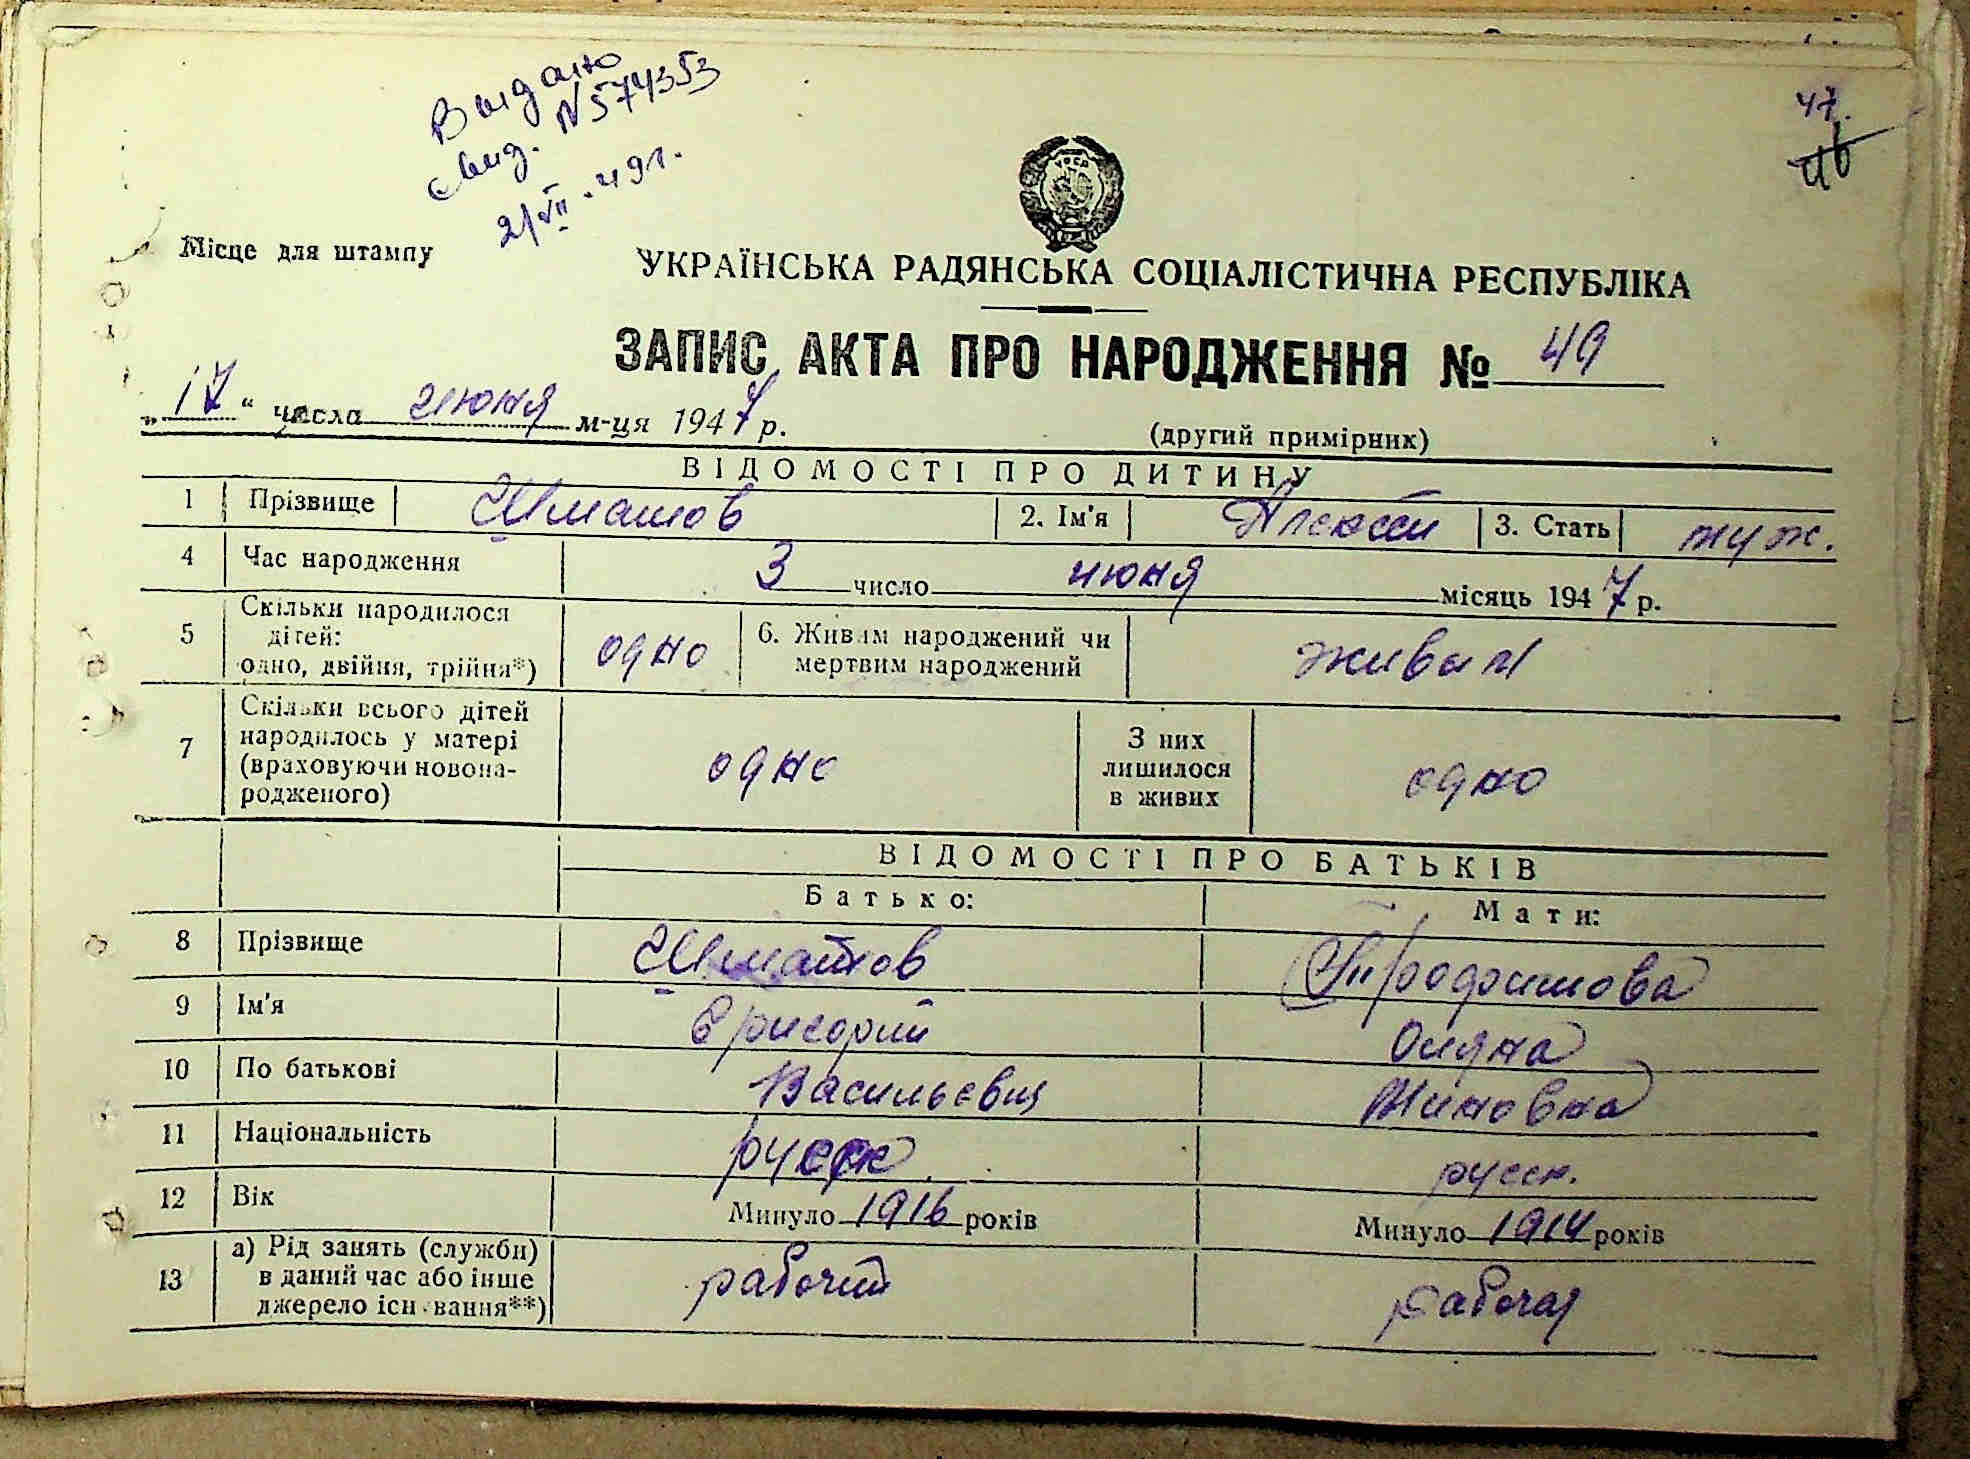 Выдано
свид. N574353
21/VII-49г.
47.
46
УРСР
Місце для штампу
УКРАЇНСЬКА РАДЯНСЬКА СОЦІАЛІСТИЧНА РЕСПУБЛІКА
ЗАПИС АКТА ПРО НАРОДЖЕННЯ № 49
„17“ числа июня м-ця 1947 р.
(другий примірник)
ВІДОМОСТІ ПРО ДИТИНУ
1 Прізвище Шматов 2. Ім'я Алексей 3. Стать муж.
4 Час народження 3 число июня місяць 1947 р.
5 Скільки народилося дітей: одно, двійня, трійня*) одно 6. Живим народжений чи мертвим народжений живым
7 Скільки всього дітей народилось у матері (враховуючи новонародженого) одно З них лишилося в живих одно
ВІДОМОСТІ ПРО БАТЬКІВ
Батько: Мати:
8 Прізвище Шматов Трофимова
9 Ім'я Григорий
10 По батькові Васильевич
11 Національність русск русск.
12 Вік Минуло 1916 років Минуло 1914 років
13 а) Рід занять (служби) в даний час або інше джерело існування**) рабочий рабочая